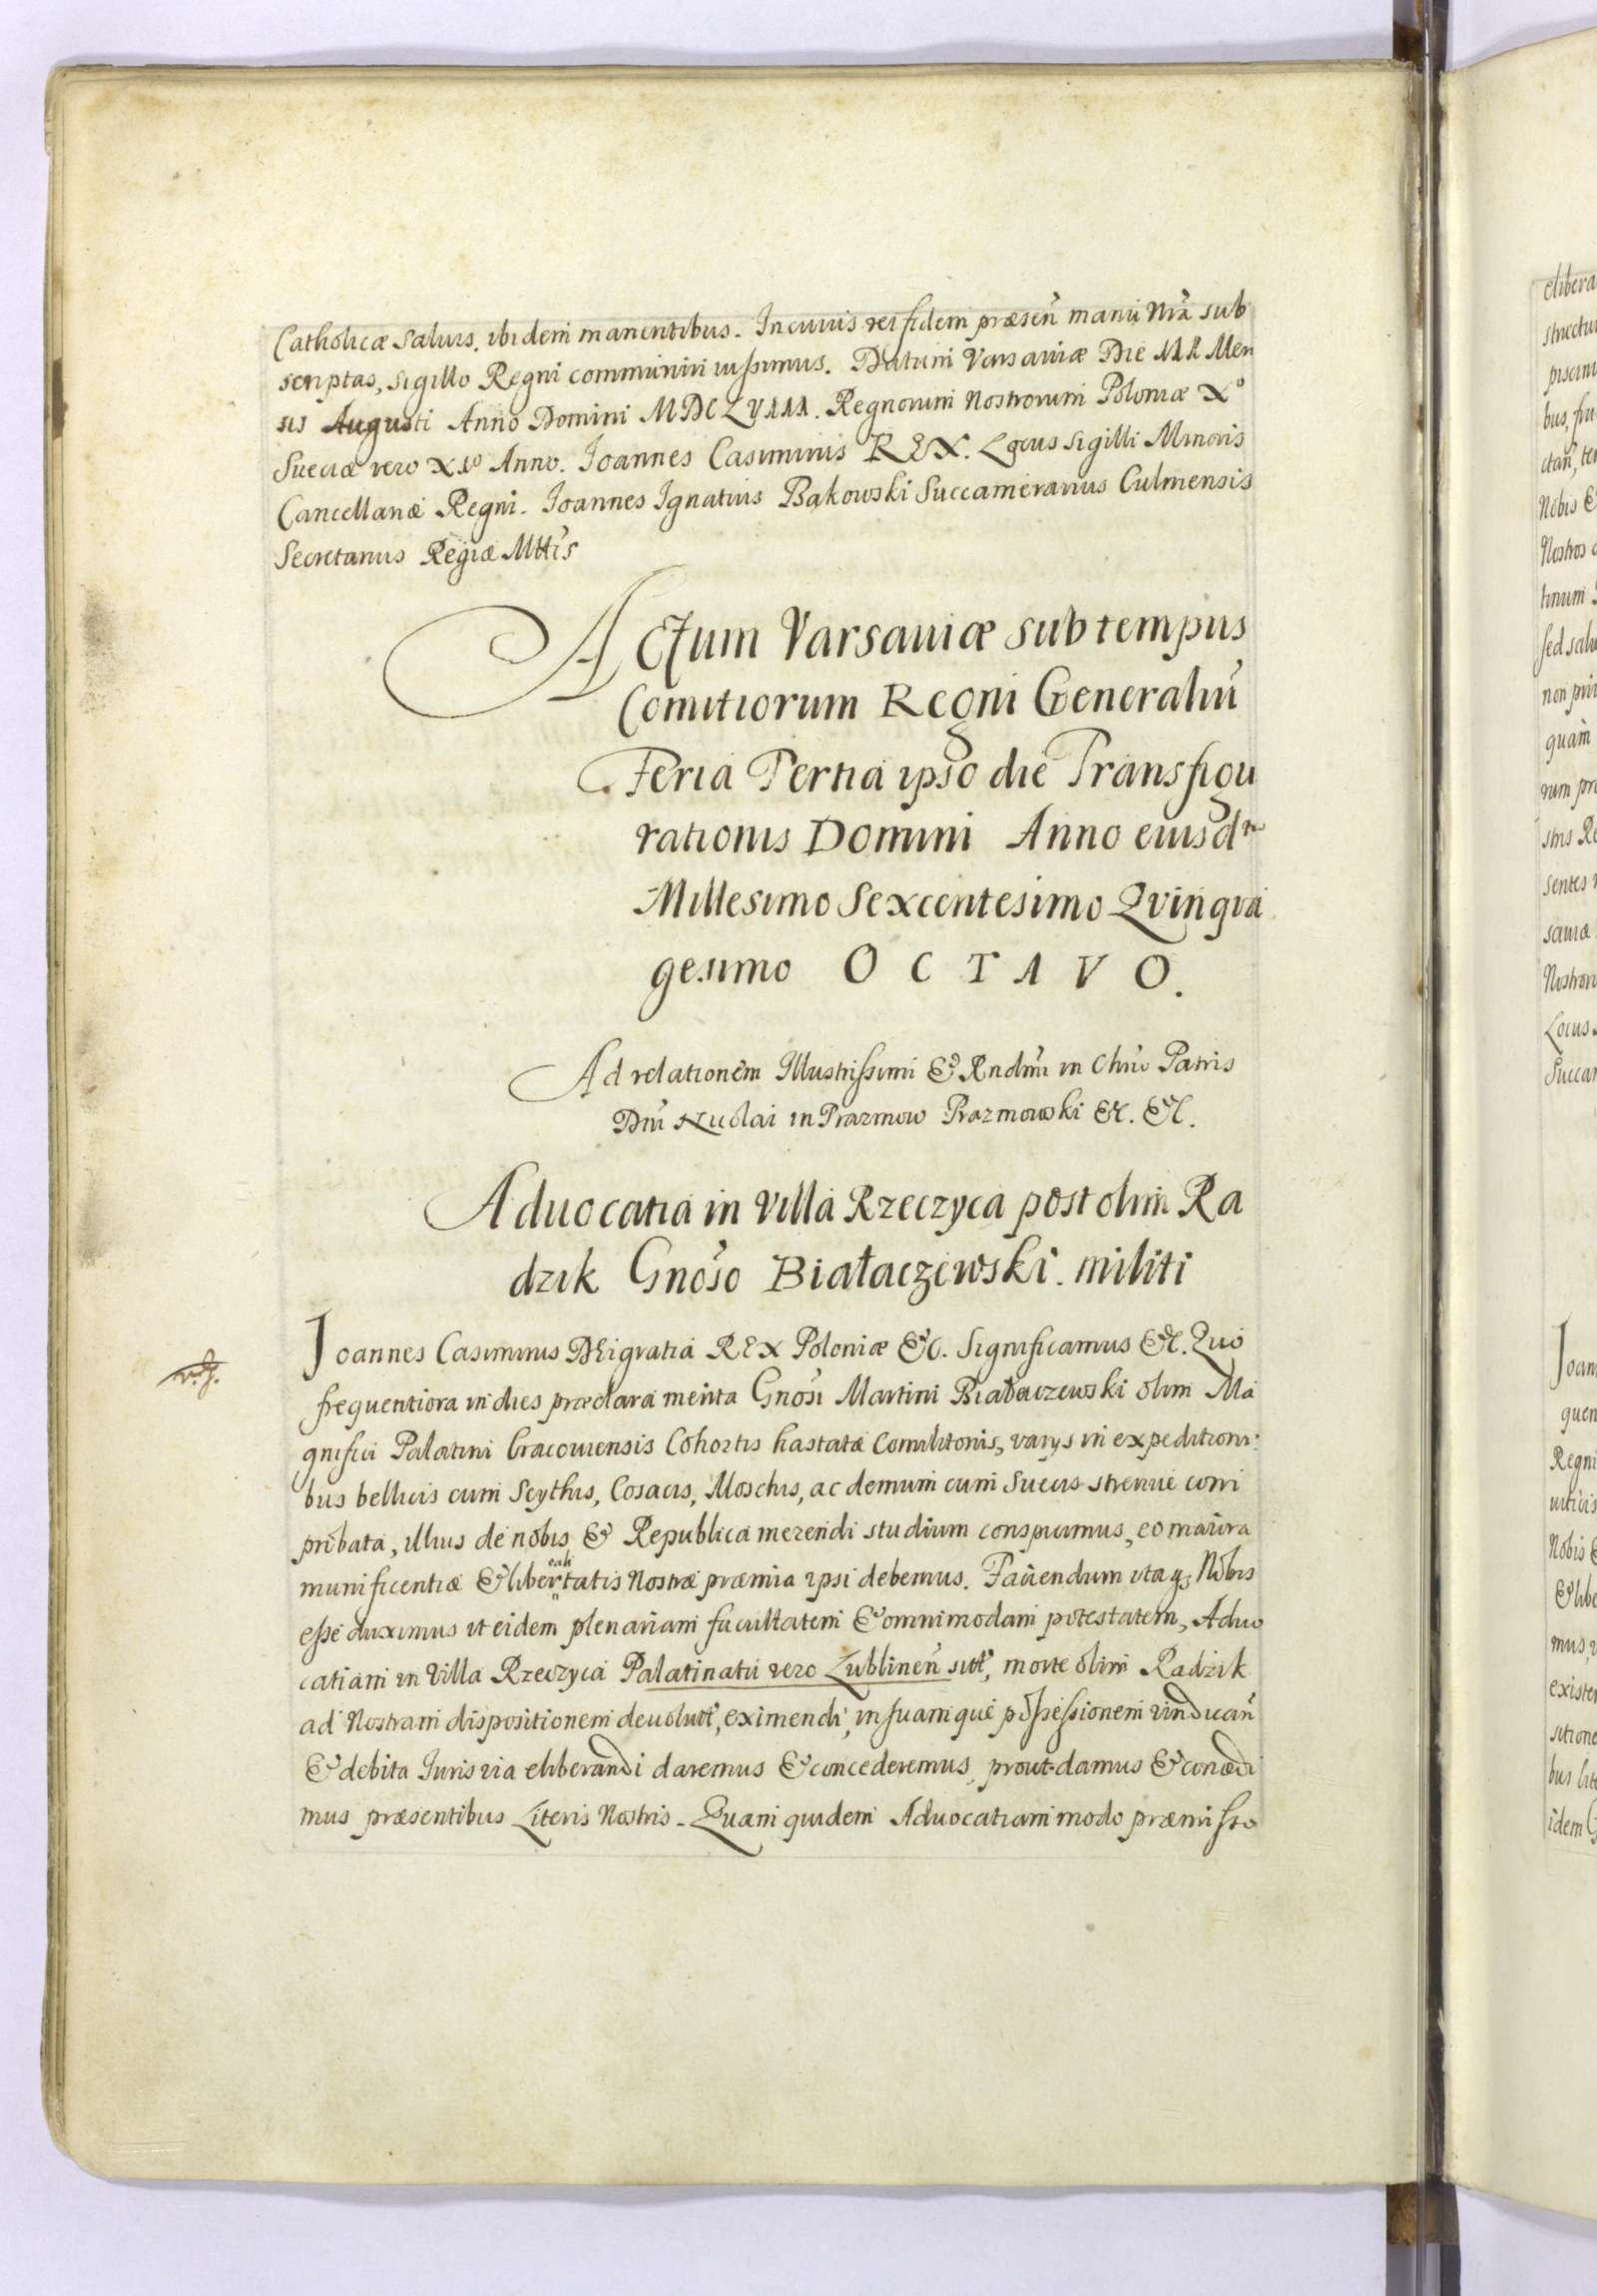 Catholicæ saluis, ibidem manentibus. In cuius rei fidem præsen̄ manū Nr̄a sub
scriptas, sigillo Regni communiri iussimus. Datum Varsaviæ Die II Men
sis Augusti Anno Domini MDCLVIII. Regnorum Nostrorum Poloniæ X°
Sueciæ vero XI° Anno. Ioannes Casimirus REX. Locus sigilli Minoris
Cancellariæ Regni. Ioannes Ignatius Bąkowski Succamerarius Culmensis
Secretarius Regiæ Mttis
Actum Varsaviæ sub tempus
Comitiorum Regni Generaliū
Feria Tertia ipso die Transfigu
rationis Domini Anno eiusdm
Millesimo Sexcentesimo Qvinqva
gesimo OCTAVO.
Ad relationem Illustrissimi & Rndmi in Chro Patris
Dni Nicolai in Prazmow Prazmowski &c. &c.
Aduocatia in Villa Rzeczyca post olim Ra
dzik Gnoso Białaczewski militi
Ioannes Casimirus DEi gratia REX Poloniæ &c. Significamus &c. Quo
frequentiora in dies præclara merita Gnosi Martini Białaczewski olim Ma
gnifici Palatini Cracoviensis Cohortis hastatæ Comilitonis, varys in expeditioni
bus bellicis cum Scythis, Cosacis, Moschis, ac demum cum Suecis strenue com
probata, illius de nobis & Republica merendi studium conspicimus, eo maiora
munificentiæ & libertatis Nostræ præmia ipsi debemus. Faciendum itaq; Nobis
rali
esse duximus ut eidem plenariam facultatem & omnimodam potestatem, Aduo
catiam in Villa Rzeczyca Palatinatu vero Lublinen̄ sit̄, morte olim Radzik
ad Nostram dispositionem devolut̄, eximendi, in suamque possessionem vindican̄
& debita Iuris via eliberandi daremus & concederemus, prout damus & concedi
mus præsentibus Literis Nostris. Quam quidem Aduocatiam modo præmisso
elibera
bus, fru
Nobis &
Nostros
tinum
sed salu
non pri
quam
rum pr
stris Re
sentes
Nostror
Locus
Succar
Ioan
quen
Regni
Nobis &
& libe
mus,
existen
sitione
bus lite
idem G